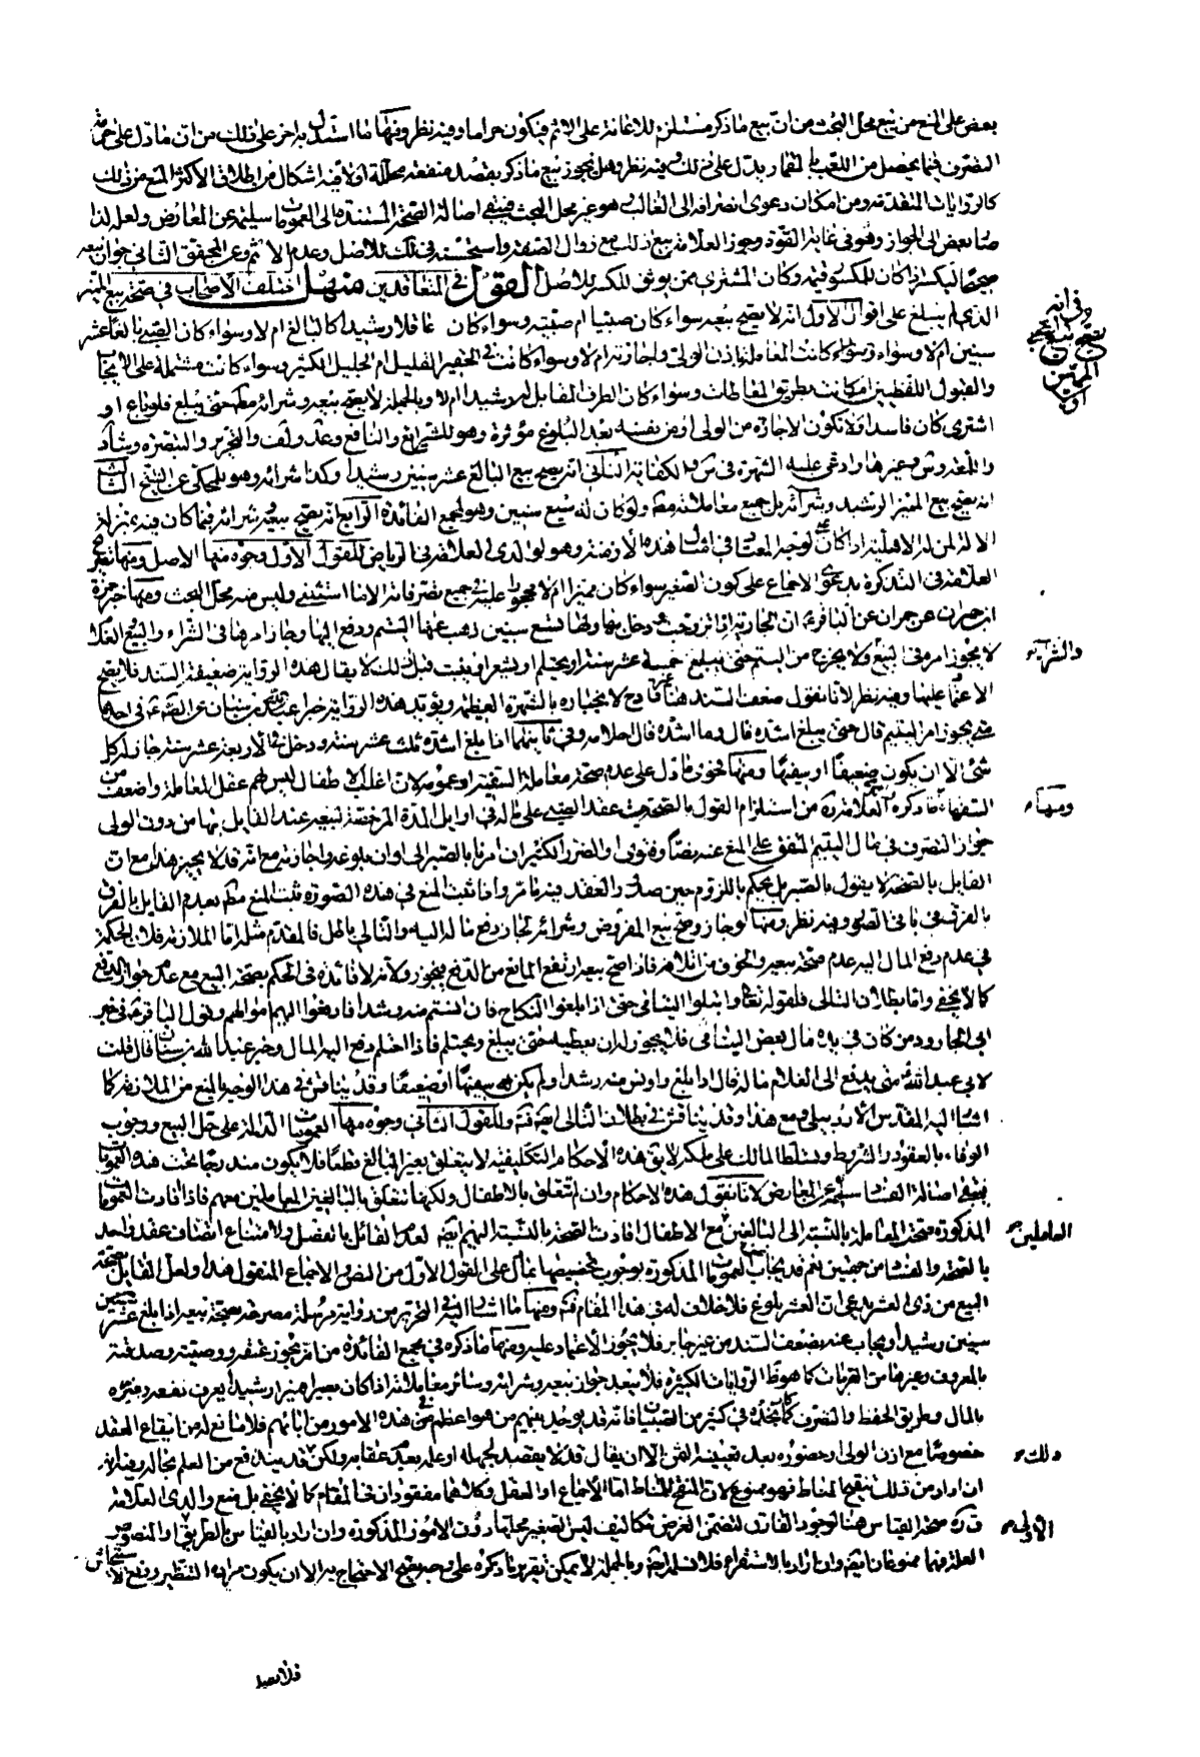 بعض على المنع من بيع محل البحث من ان بيع ما ذكر مستلزم للاعانة على الاثم فيكون حراما وفيه نظر ومنها ما استدل به اخر على ذلك من ان ما دل على حرمة
التصرف فيما يحصل من اللعب بالقمار يدل على ذلك وفيه نظر وهل يجوز بيع ما ذكر بقصد منفعة محللة او لا فيه اشكال من اطلاق الاكثر المنع من ذلك
كالروايات المتقدمة ومن امكان دعوى انصرافه الى الغالب وهو غير محل البحث فيبقى اصالة الصحة المستندة الى العمومات سليمة عن المعارض ولعله لذا
صار بعض الى الجواز وهو في غاية القوة وجوز العلامة بيع ذلك مع زوال الصفة واستحسنه في لك للاصل وعدم الاثم وعن المحقق الثاني جواز بيعه
صحيحا ليكسر اذا كان المكسور قيمة وكان المشتري ممن يوثق بكسره للاصل القول في المتعاقدين منهل اختلف الاصحاب في صحة بيع المميز
الذي لم يبلغ على اقوال الاول انه لا يصح بيعه سواء كان صبيا ام صبية وسواء كان عاقلا رشيدا كالبالغ ام لا وسواء كان الصبي بالغا عشر
سنين ام لا وسواء كانت المعاملة باذن الولي واجازته ام لا وسواء كانت في الحقير القليل ام الجليل الكثير وسواء كانت مشتملة على الايجاب
والقبول اللفظيين ام كانت بطريق المعاطات وسواء كان الطرف المقابل له رشيدا ام لا وبالجملة لا يصح بيعه وشرائه مطلقا حتى يبلغ فلو باع او
اشترى كان فاسدا ولا تكون الاجازة من الولي او من نفسه بعد البلوغ مؤثرة وهو للشرايع والنافع وعد ولف والتحرير والتبصرة وشاد
واللمعة وس وغيرها وادعى عليه الشهرة في س والكفاية الثاني انه يصح بيع البالغ عشر سنين رشيدا وكذا شرائه وهو للمحكي عن الشيخ الثالث
انه يصح بيع المميز الرشيد وشرائه بل جميع معاملاته مطلقا ولو كان له تسع سنين وهو لمجمع الفائدة الرابع انه يصح بيعه وشرائه فيما كان فيه بمنزلة
الالة لمن له الاهلية اذا كان على الوجه المعتاد في امثال هذه الازمنة وهو لوالدي العلامة في الرياض للقول الاول وجوه منها الاصل ومنها تصريح
العلامة في التذكرة بدعوى الاجماع على كون الصغير سواء كان مميزا ام لا محجورا عليه في جميع تصرفاته الا ما استثني وليس منه محل البحث ومنها خبر حمزة
ابن حمران عن حمران عن الباقر ع ان الجارية اذا تزوجت ودخل بها ولها تسع سنين ذهب عنها اليتم ودفع اليها وجاز امرها في الشراء والبيع والغلام
لا يجوز امره في البيع ولا يخرج من اليتم حتى يبلغ خمسة عشر سنة او يحتلم او يشعر او ينبت قبل ذلك لا يقال هذه الرواية ضعيفة السند فلا يصح
الاعتماد عليها وفيه نظر لانا نقول ضعف السند هنا غير قادح لانجباره بالشهرة العظيمة ويؤيد هذه الرواية خبر عبد الله بن سنان عن الصادق ع في احدهما
متى يجوز امر اليتيم قال حتى يبلغ اشده قال وما اشده قال احتلامه وفي ثانيهما اذا بلغ اشده ثلث عشر سنة ودخل في الاربعة عشر سنة جاز له كل
شئ الا ان يكون ضعيفا او سفيها ومنها فحوى ما دل على عدم صحة معاملة السفيه او عمومه لان اغلب الاطفال ليس لهم عقل المعاملة واضعف من
السفهاء ما ذكره العلامة ره من استلزام القول بالصحة حيث عقد الصبي على ماله في اوايل المدة المرخصة لبيعه عند القايل بها من دون الولي
جواز التصرف في مال اليتيم المتفق على المنع عنه نصا وفتوى والضرر الكثير ان امرنا بالصبر الى اوان بلوغه واجازته مع انه قد لا يجيز هذا مع ان
القايل بالصحة لا يقول بالصبر بل يحكم باللزوم حين صدور العقد فيه تامل واذا ثبت المنع في هذه الصورة ثبت المنع مطلقا بعدم القايل بالفرق
بالفرق في باقي الصور وفيه نظر ومنها لو جاز وصح بيع المفروض وشرائه لجاز دفع ماله اليه والتالي باطل فالمقدم مثله اما الملازمة فلان الحكمة
في عدم دفع المال اليه عدم صحة بيعه والخوف من اتلافه فاذا صح بيعه ارتفع المانع من الدفع فيجوز ولانه لا فائدة في الحكم بصحة البيع مع عدم جواز الدفع
كما لا يخفى واما بطلان التالي فلقوله تعالى وابتلوا اليتامى حتى اذا بلغوا النكاح فان انستم منهم رشدا فادفعوا اليهم اموالهم وقول الباقر ع في خبر
ابي الجارود من كان في يده مال بعض اليتامى فلا يجوز له ان يعطيه حتى يبلغ ويحتلم فاذا احتلم دفع اليه المال وخبر عبد الله بن سنان قال قلت
لابي عبد الله ع متى يدفع الى الغلام ماله قال اذا بلغ واونس منه رشدا ولم يكن سفيها او ضعيفا وقد يناقش في هذا الوجه بالمنع من الملازمة كما
اشار اليه المقدس الاردبيلي ومع هذا وقد يناقش في بطلان التالي ايضا فت وللقول الثاني وجوه منها العمومات الدالة على حل البيع ووجوب
الوفاء بالعقود والشروط وتسلط المالك على ملكه لا يق هذه الاحكام التكليفية لا يتعلق بغير البالغ قطعا فلا يكون مندرجا تحت هذه العمومات
فيبقى اصالة الفساد سليمة عن المعارض لانا نقول هذه الاحكام وان لم تتعلق بالاطفال ولكنها تتعلق بالبالغين المعاملين معهم فاذا افادت العمومات
المذكورة صحة المعاملة بالنسبة الى البالغين مع الاطفال افادت الصحة بالنسبة اليهم ايضا لعدم القائل بالفصل ولامتناع اتصاف عقد واحد
بالصحة والفساد من جهتين نعم قد يجاب عن العمومات المذكورة بوجوب تخصيصها بما دل على القول الاول من النص والاجماع المنقول هذا ولعل القايل بصحة
البيع من ذي العشر يدعي ان العشر بلوغ فلا خلاف له في هذا المقام فت ومنها ما اشار اليه في التحرير من رواية مرسلة مصرحة بصحة بيعه اذا بلغ عشر سنين
سنين رشيدا ويجاب عنه بضعف السند من غير جابر فلا يجوز الاعتماد عليه ومنها ما ذكره في مجمع الفائدة من انه يجوز عتقه ووصيته وصدقته
بالمعروف وغيرها من القربات كما هو ظ الروايات الكثيرة فلا يبعد جواز بيعه وشرائه وسائر معاملاته اذا كان بصيرا مميزا رشيدا يعرف نفعه وضره
بالمال وطريق الحفظ والتصرف كما نجده في كثير من الصبيان فانه قد يوجد بينهم من هو اعظم في هذه الامور من ابائهم فلا مانع له من ايقاع العقد
خصوصا مع اذن الولي او حضوره بعد تعيينه الثمن الا ان يقال قد لا يقصد لجهله او علمه بعدم عقابه ولكن قد يندفع من العلم بحاله وفيه انه
ان اراد من ذلك تنقيح المناط فهو ممنوع لان المنقح للمناط اما الاجماع او العقل وكلاهما مفقودان في المقام كما لا يخفى بل منع والدي العلامة
قده صحة القياس هنا لوجود الفارق لتضمن الغرض تكاليف ليس الصغير محلها دون الامور المذكورة وان اراد بالقياس بالطريق والمنصوص
العلة فهما ممنوعان ايضا وان اراد بالاستقراء فلا نسلمه ايضا وبالجملة لا يمكن تقرير ما ذكره على وجه يصح الاحتجاج به الا ان يكون مراده التنظير ودفع الاستيحاش
في انه
يصح بيع
المميز
او لا
والشراء
ومنها
العاملين
ذلك
الاولى
فلا بعيد